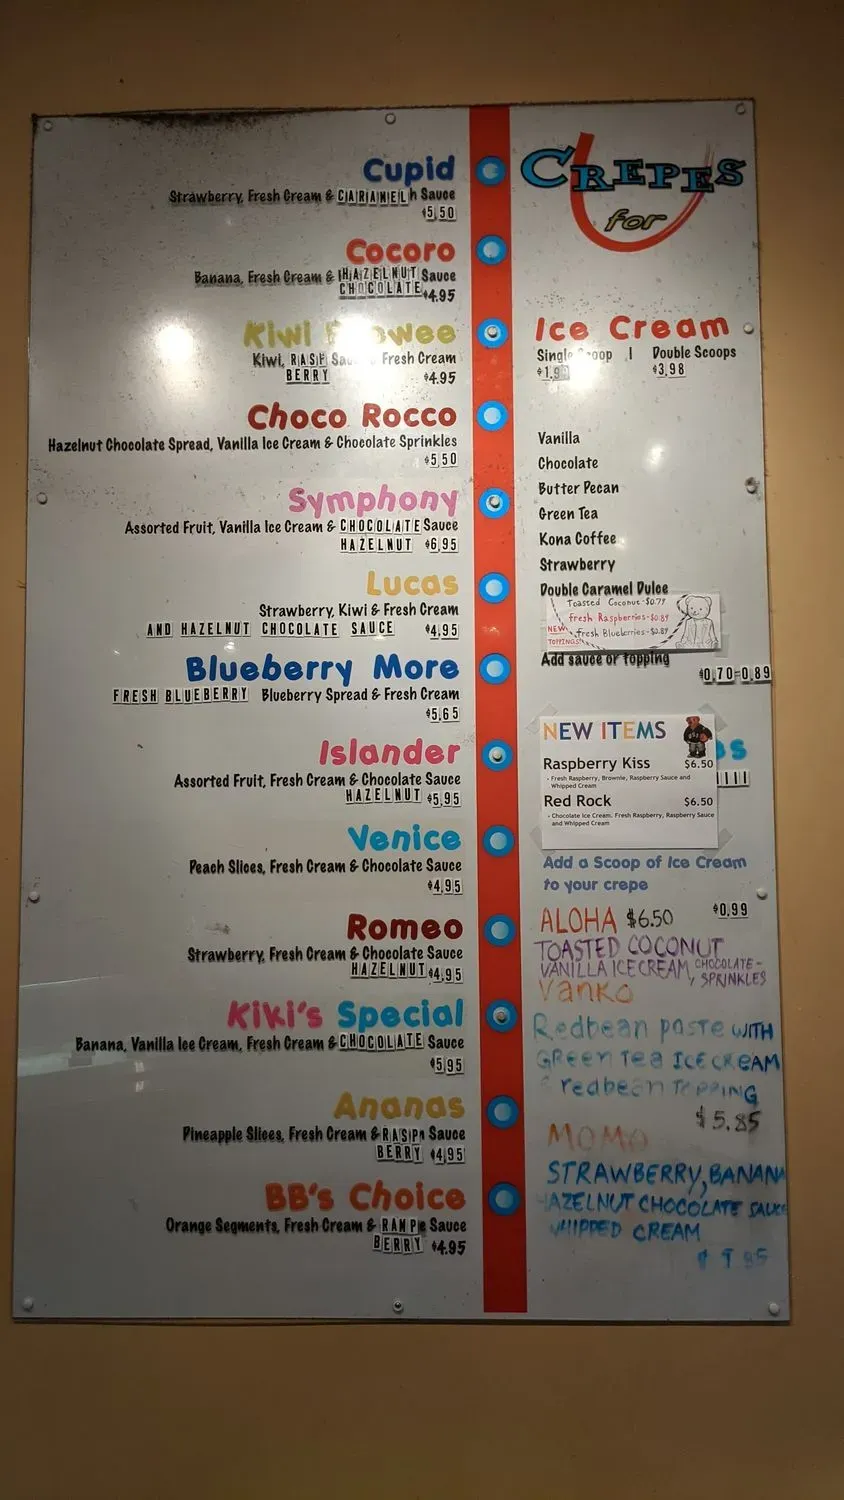 Cupid
Strawberry, Fresh Cream & CARAMEL h Sauce
$5.50
Cocoro
Banana, Fresh Cream & HAZELNUT Sauce
CHOCOLATE $4.95
Kiwi
Kiwi, RASP Fresh Cream
BERRY $4.95
Choco Rocco
Hazelnut Chocolate Spread, Vanilla Ice Cream & Chocolate Sprinkles
$5.50
Symphony
Assorted Fruit, Vanilla Ice Cream & CHOCOLATE Sauce
HAZELNUT $6.95
Lucas
Strawberry, Kiwi & Fresh Cream
AND HAZELNUT CHOCOLATE SAUCE $4.95
Blueberry More
FRESH BLUEBERRY Blueberry Spread & Fresh Cream
$5.65
Islander
Assorted Fruit, Fresh Cream & Chocolate Sauce
HAZELNUT $5.95
Venice
Peach Slices, Fresh Cream & Chocolate Sauce
$4.95
Romeo
Strawberry, Fresh Cream & Chocolate Sauce
HAZELNUT $4.95
Kiki's Special
Banana, Vanilla Ice Cream, Fresh Cream & CHOCOLATE Sauce
$5.95
Ananas
Pineapple Slices, Fresh Cream & RASP Sauce
BERRY $4.95
BB's Choice
Orange Segments, Fresh Cream & Sauce
BERRY $4.95
CREPES
for U
Ice Cream
Single Scoop | Double Scoops
$3.98
Vanilla
Chocolate
Butter Pecan
Green Tea
Kona Coffee
Strawberry
Double Caramel Dulce
Toasted Coconut-$0.79
fresh Raspberries-$0.89
NEW fresh Blueberries-$0.89
TOPPINGS!
Add sauce or topping
$0.70-0.89
NEW ITEMS
Raspberry Kiss $6.50
- Fresh Raspberry, Brownie, Raspberry Sauce and
Whipped Cream
Red Rock $6.50
- Chocolate Ice Cream, Fresh Raspberry, Raspberry Sauce
and Whipped Cream
Add a Scoop of Ice Cream
to your crepe
$0.99
ALOHA $6.50
TOASTED COCONUT
VANILLA ICE CREAM, CHOCOLATE-
SPRINKLES
Vanko
Redbean paste WITH
GReen Tea ICE CREAM
redbean TOPPING
$5.85
MOMO
STRAWBERRY, BANANA
HAZELNUT CHOCOLATE SAUCE
WHIPPED CREAM